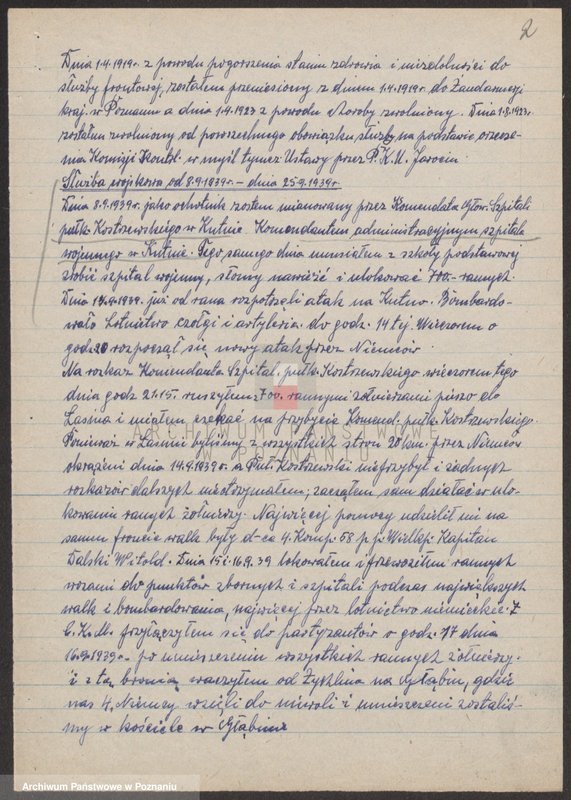 2
Dnia 1.4.1919r. z powodu pogorszenia stanu zdrowia i niezdolności do
służby frontowej, zostałem przeniesiony z dniem 1.4.1919r. do Żandarmerji
kraj. w Poznaniu a dnia 1.4.1923 z powodu choroby zwolniony. Dnia 1.8.1923r.
zostałem zwolniony od powszechnego obowiązku służby na podstawie orzecze-
nia Komisji Kontrl. w myśl tymcz Ustawy przez P.K.U. Jarocin.
Służba wojskowa od 8.9.1939r. – dnia 25.9.1939r.
Dnia 8.9.1939r. jako ochotnik zostem mianowany przez Komendata Głów. Szpitali
pułk. Kostrzewskiego w Kutnie Komendantem administracyjnym szpitala
wojennego w Kutnie. Tego samego dnia musiałem z szkoły podstawowej
zrobić szpital wojenny, słomy nawieźć i ulokować 700.- rannych.
Dnia 14.9.1939. już od rana rozpoczęli atak na Kutno. Bombardo-
wało Lotnictwo czołgi i artyleria do godz. 14tej Wieczorem o
godz. 20 rozpoczął się nowy atak przez Niemców.
Na rozkaz Komendanta Szpital. pułk. Kostrzewskiego wieczorem, tego
dnia godz 21.15. ruszyłem z 700. rannymi żołnierzami pieszo do
Łasina i miałem czekać na przybycie Komend. pułk. Kostrzewskiego.
Ponieważ w Łasinie byliśmy z wszystkich stron 20 km. przez Niemców
okrążeni dnia 14.9.1939r. a Puł. Kostrzewski nieprzybył i żadnych
rozkazów dalszych nieotrzymałem, zacząłem sam działać w ulo-
kowaniu ranych żołnierzy. Najwięcej pomocy udzielił mi na
samm froncie walk były d-ca 4. Komp. 58 p.p. Wielkp. Kapitan
Dalski Witold. Dnia 15 i 16.9.39 lokowałem i przewoziłem rannych
wozami do punktów zbornych i szpitali podczas największych
walk i bombardowania, najwięcej przez lotnictwo niemieckie. Z
b. K.dl. przyłączyłem się do partyzantów o godz. 17 dnia
16.9.1939r. po umieszczeniu wszystkich rannych żołnierzy.
i z tą bronią walczyłem od Żychlina na Głąbin, gdzie
nas 4. Niemcy wzięli do niewoli i umieszczeni zostaliś-
my w kościele w Głąbinie
ARCHIWUM PAŃSTWOWE
W POZNANIU
Archiwum Państwowe w Poznaniu